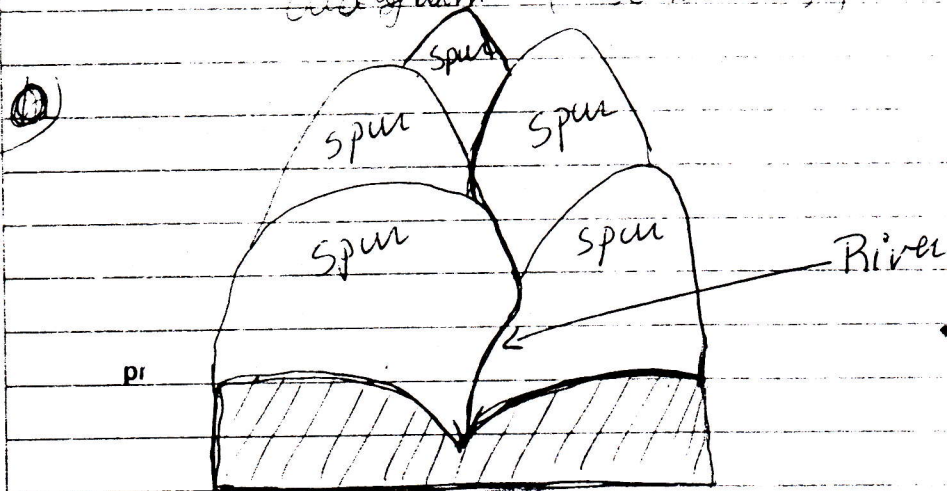 spur
spur
spur
spur
spur
River
pr